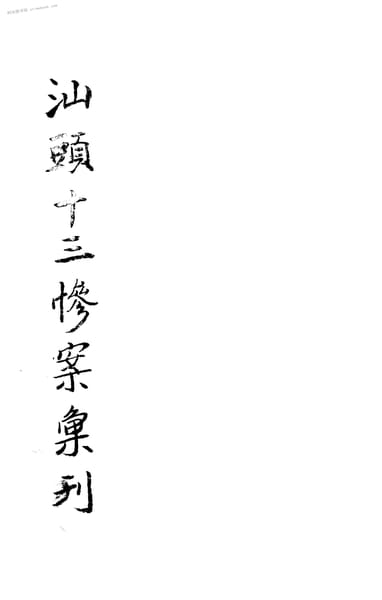 汕頭十三慘案彙刊